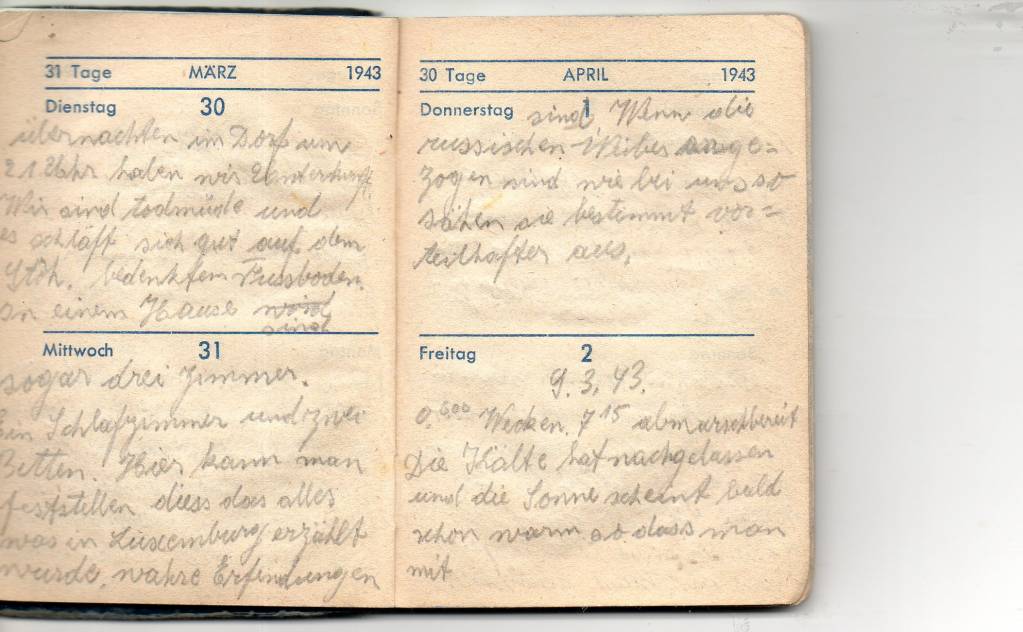 31 Tage MÄRZ 1943
Dienstag 30
übernachten im Dorf um
21 Uhr haben wir Unterkunft
Wir sind todmüde und
es schläft sich gut auf dem
Stroh. bedenktem Fussboden.
In einem Hause wird
sind
Mittwoch 31
sogar drei Zimmer.
Ein Schlafzimmer und zwei
Betten. Hier kann man
feststellen dass das alles
was in Luxemburg erzählt
wurde, wahre Erfindungen
30 Tage APRIL 1943
Donnerstag 1
sind Wenn die
russischen Weiber ange-
zogen sind wie bei uns so
sähen sie bestimmt vor-
teilhafter aus.
Freitag 2
9.3.43.
0.6.00 Wecken. 7 15 abmarschbereit
Die Kälte hat nachgelassen
und die Sonne scheint bald
schon warm so dass man
mit